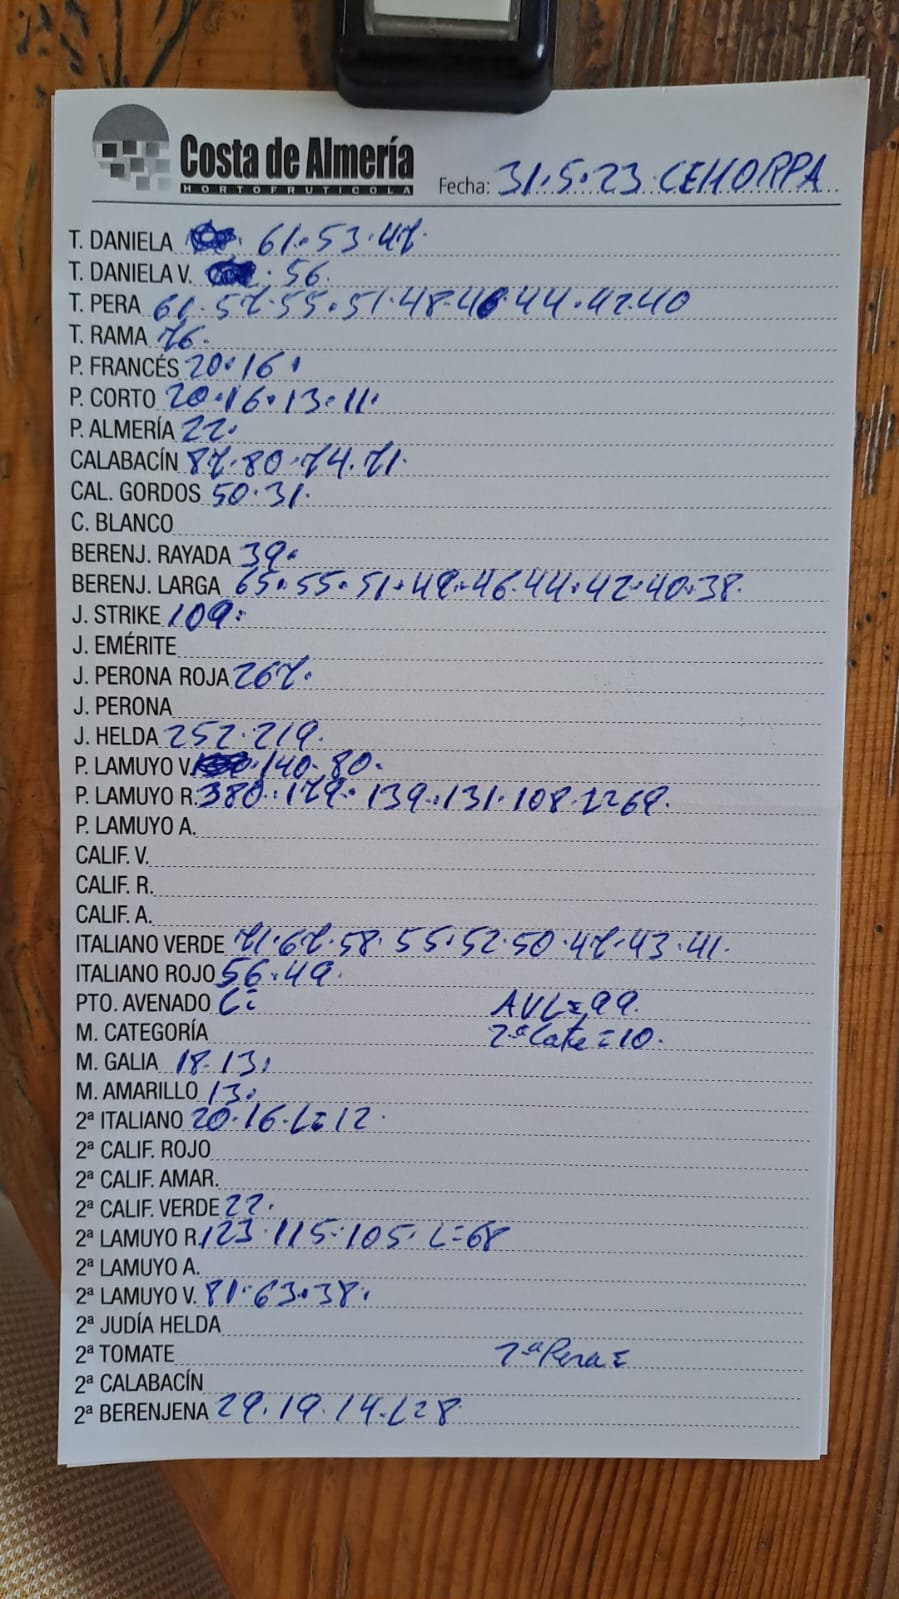 Costa de Almería
HORTOFRUTICOLA
Fecha: 31.5.23 CEHORPA
T. DANIELA 61.53.47.
T. DANIELA V. 56.
T. PERA 61.57.55.51.48.46.44.42.40
T. RAMA 76.
P. FRANCÉS 20.16.
P. CORTO 20.16.13.11.
P. ALMERÍA 22.
CALABACÍN 87.80.74.71.
CAL. GORDOS 50.31.
C. BLANCO
BERENJ. RAYADA 39.
BERENJ. LARGA 65.55.51.49.46.44.42.40.38.
J. STRIKE 109.
J. EMÉRITE
J. PERONA ROJA 267.
J. PERONA
J. HELDA 252.219.
P. LAMUYO V. 140.80.
P. LAMUYO R. 380.179.139.131.108.L=69.
P. LAMUYO A.
CALIF. V.
CALIF. R.
CALIF. A.
ITALIANO VERDE 71.67.58.55.52.50.47.43.41.
ITALIANO ROJO 56.49.
PTO. AVENADO L= AVL=99.
M. CATEGORÍA 2ªCate=10.
M. GALIA 18.13.
M. AMARILLO 13.
2ª ITALIANO 20.16.L=12.
2ª CALIF. ROJO
2ª CALIF. AMAR.
2ª CALIF. VERDE 22.
2ª LAMUYO R. 123.115.105.L=68
2ª LAMUYO A.
2ª LAMUYO V. 81.63.38.
2ª JUDÍA HELDA
2ª TOMATE 2ªPera=
2ª CALABACÍN
2ª BERENJENA 29.19.14.L=8